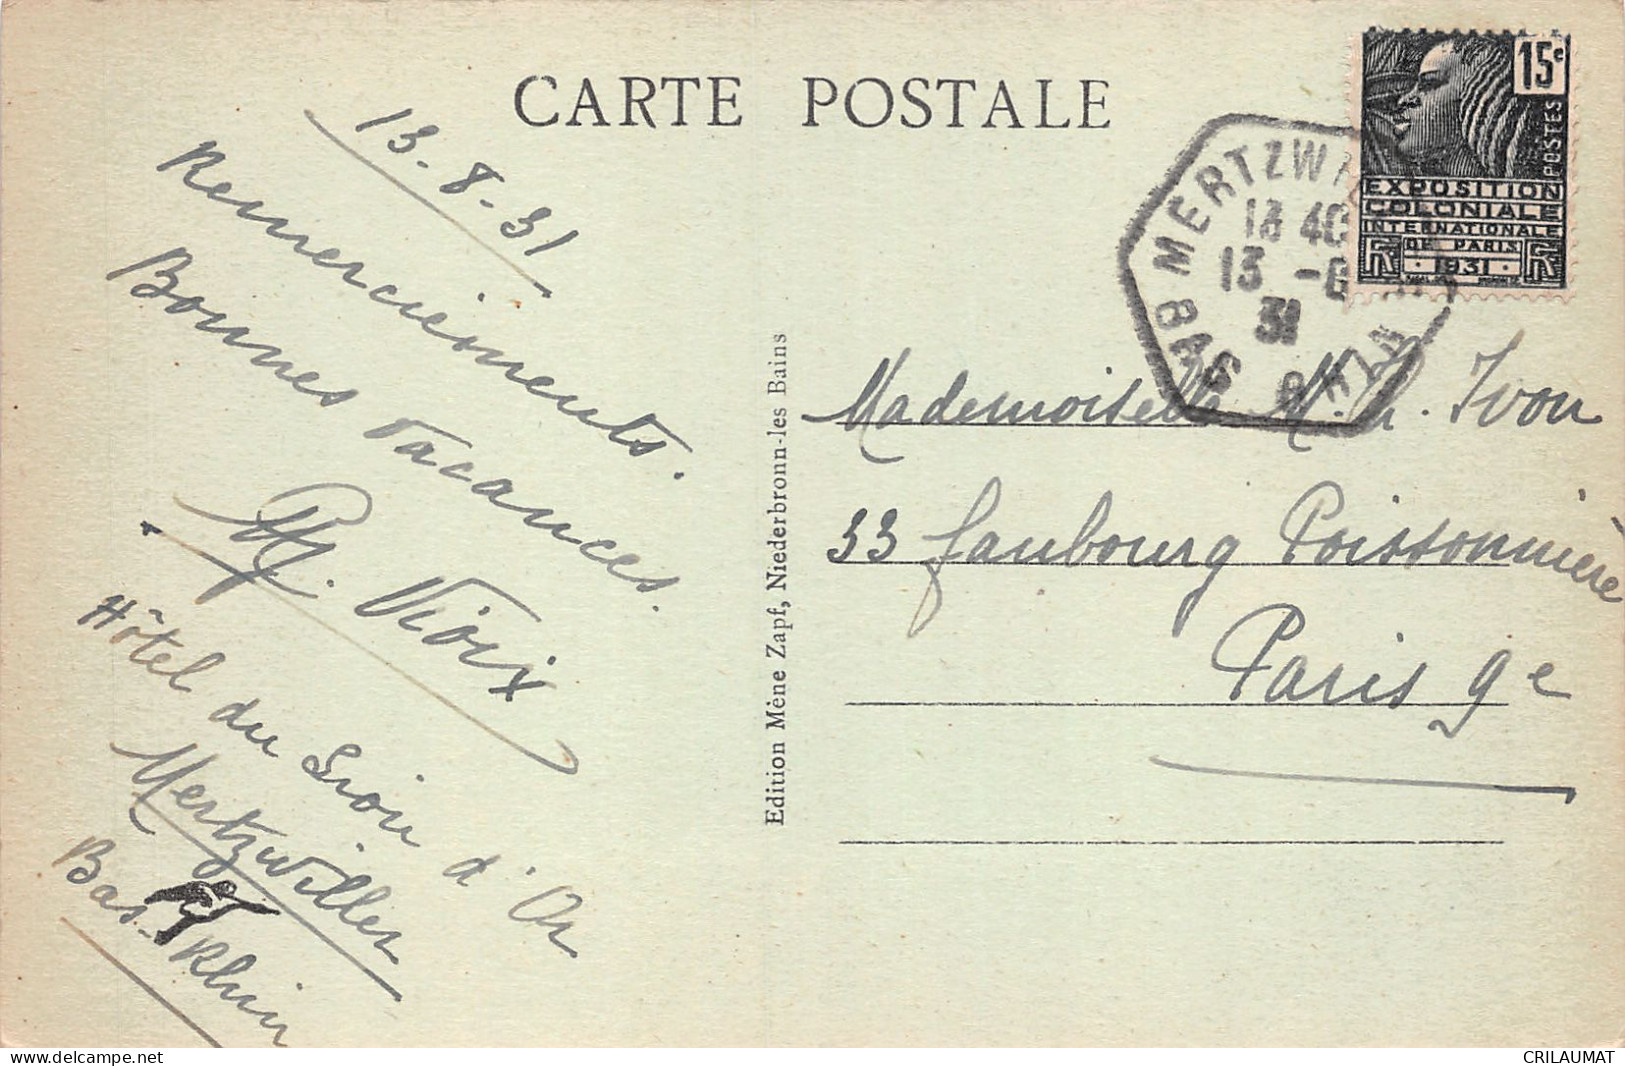 CARTE POSTALE
13-8-31
Remerciements.
Bonnes vacances.
M. Noix
Hôtel du Lion d'Or
Mertzwiller
Bas-Rhin
Edition Mène Zapf, Niederbronn-les Bains
15c
POSTES
EXPOSITION
COLONIALE
INTERNATIONALE
DE PARIS
1931
RF RF
MERTZW
13
31
BAS RHIN
Mademoiselle M. Yvon
33 faubourg Poissonnière
Paris 9e
CRILAUMAT